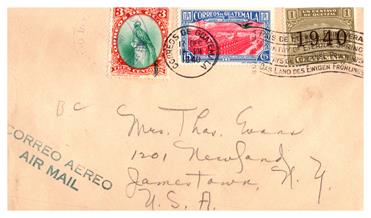 3 3
CORREOS DE GUATEMALA
1 UN CENTAVO DE QUETZAL 1
1940
CORREOS DE GUATEMALA
1940
DAS LAND DES EWIGEN FRÜHLINGS
BC
Mrs. Thos. Evans
1201 Newland
Jamestown, N. Y.
U. S. A.
CORREO AEREO
AIR MAIL